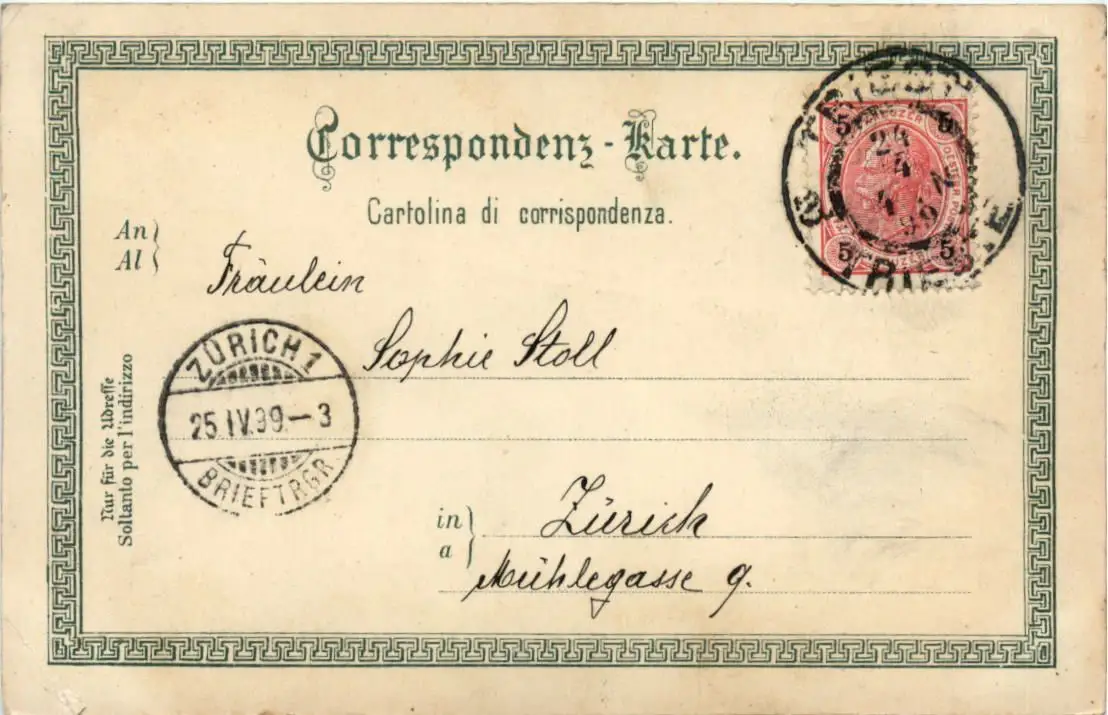 Correspondenz-Karte.
Cartolina di corrispondenza.
An
Al
Fräulein
Sophie Stoll
in
a
Zürich
Mühlegasse 9.
Nur für die Adresse
Soltanto per l'indirizzo
ZÜRICH 1
25.IV.99.–3
BRIEFTRGR.
TRIEST
24
4
TRIESTE
5 5
KREUZER
5 5